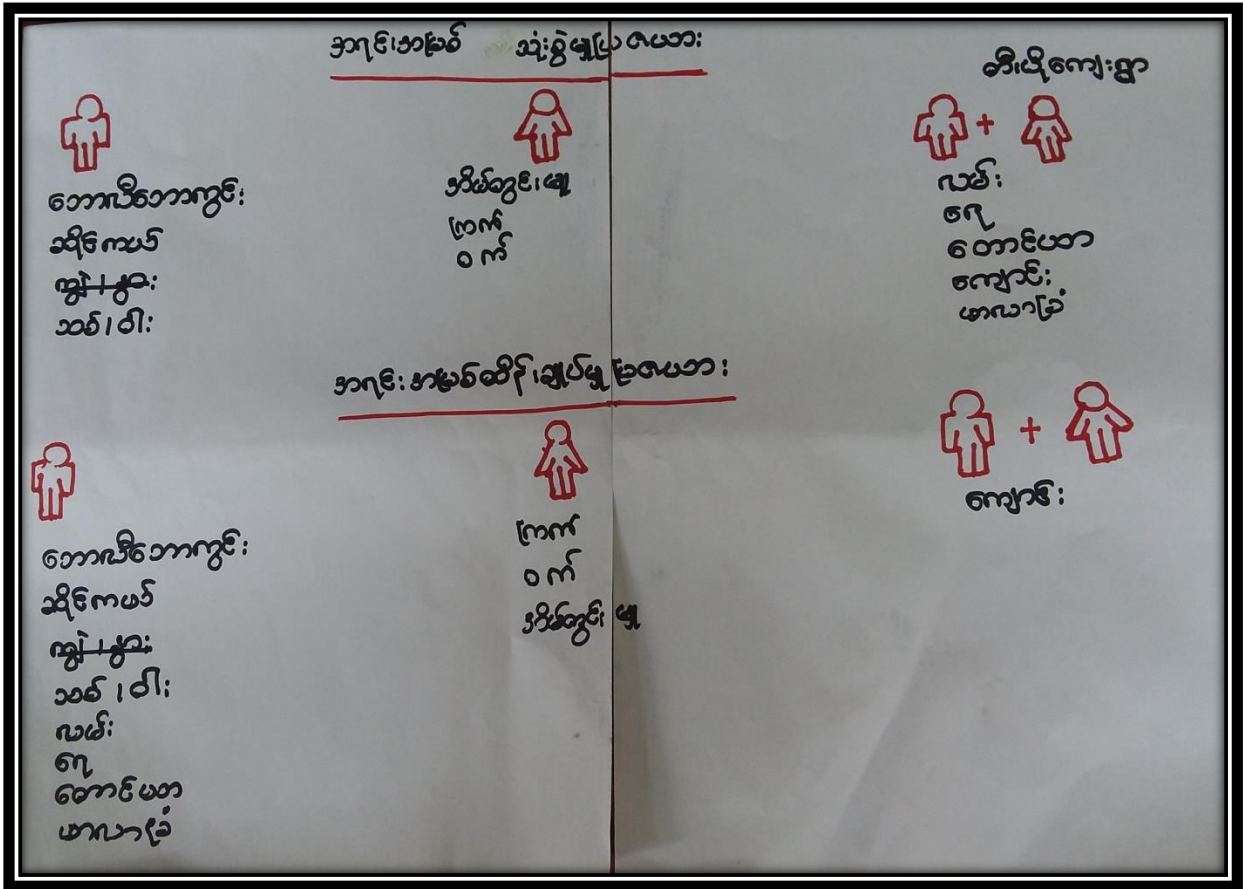 အရင်းအမြစ် သုံးစွဲမှုပြဇယား
တီးပိုကျေးရွာ
ဘောလီဘောကွင်း
ဆိုင်ကယ်
ကျွဲ၊နွား
သစ်၊ဝါး
အိမ်တွင်းမှု
ကြက်
ဝက်
လမ်း
ရေ
တောင်ယာ
ကျောင်း
ဖာလာခြံ
အရင်းအမြစ်ထိန်းချုပ်မှုပြဇယား
ဘောလီဘောကွင်း
ဆိုင်ကယ်
ကျွဲ၊နွား
သစ်၊ဝါး
လမ်း
ရေ
တောင်ယာ
ဖာလာခြံ
ကြက်
ဝက်
အိမ်တွင်းမှု
ကျောင်း